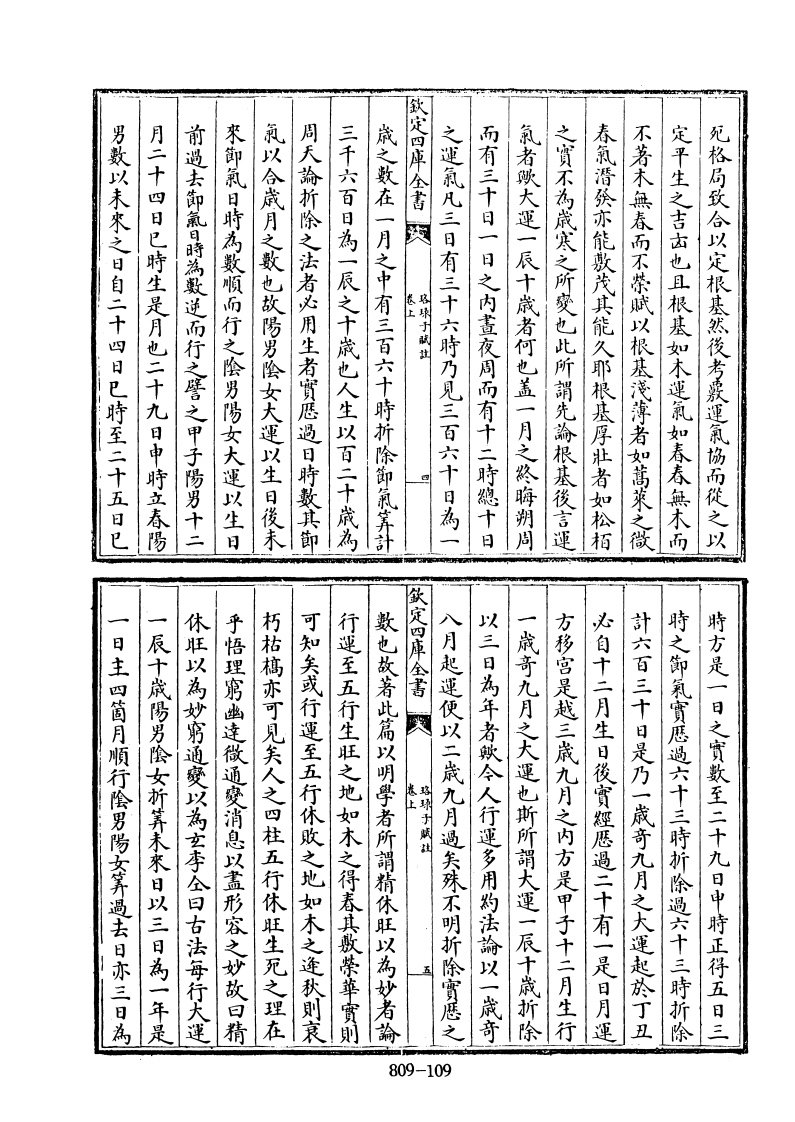 死格局致合以定根基然後考覈運氣協而從之以
定平生之吉凶也且根基如木運氣如春春無木而
不著木無春而不榮賦以根基淺薄者如蒿萊之微
春氣潛發亦能敷茂其能久耶根基厚壯者如松栢
之實不為歲寒之所變也此所謂先論根基後言運
氣者歟大運一辰十歲者何也盖一月之終晦朔周
而有三十日一日之内晝夜周而有十二時總十日
之運氣凡三日有三十六時乃見三百六十日為一
欽定四庫全書
珞琭子賦註
卷上
四
歲之數在一月之中有三百六十時折除節氣筭計
三千六百日為一辰之十歲也人生以百二十歲為
周天論折除之法者必用生者實歷過日時數其節
氣以合歲月之數也故陽男隂女大運以生日後未
來節氣日時為數順而行之隂男陽女大運以生日
前過去節氣日時為數逆而行之譬之甲子陽男十二
月二十四日巳時生是月也二十九日申時立春陽
男數以未來之日自二十四日巳時至二十五日巳
時方是一日之實數至二十九日申時正得五日三
時之節氣實歷過六十三時折除過六十三時折除
計六百三十日是乃一歲奇九月之大運起於丁丑
必自十二月生日後實經歷過二十有一是日月運
方移宫是越三歲九月之内方是甲子十二月生行
一歲奇九月之大運也斯所謂大運一辰十歲折除
以三日為年者歟今人行運多用約法論以一歲奇
八月起運便以二歲九月過矣殊不明折除實歷之
欽定四庫全書
珞琭子賦註
卷上
五
數也故著此篇以明學者所謂精休旺以為妙者論
行運至五行生旺之地如木之得春其敷榮華實則
可知矣或行運至五行休敗之地如木之逢秋則衰
朽枯槁亦可見矣人之四柱五行休旺生死之理在
乎悟理窮幽達微通變消息以盡形容之妙故曰精
休旺以為妙窮通變以為玄李仝曰古法每行大運
一辰十歲陽男隂女折筭未來日以三日為一年是
一日主四箇月順行隂男陽女筭過去日亦三日為
809-109